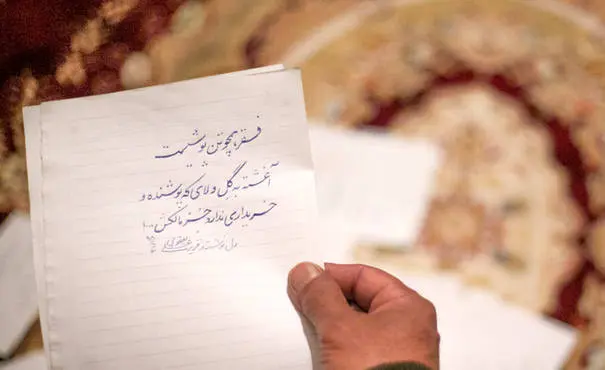 فقر، همچو تن پوشیست
آغشته به گِل و لای که پوشنده و
خریداری ندارد جُز مالکش...!